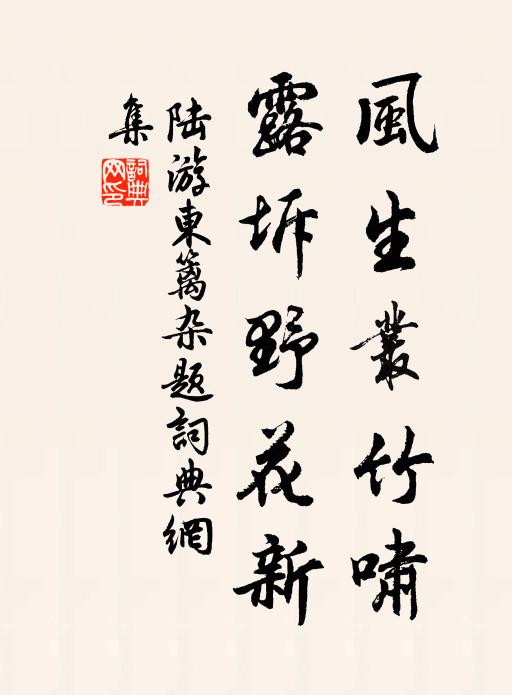 風生叢竹嘯
露坼野花新
陸游東籬杂题詞典網
集
詞典網印